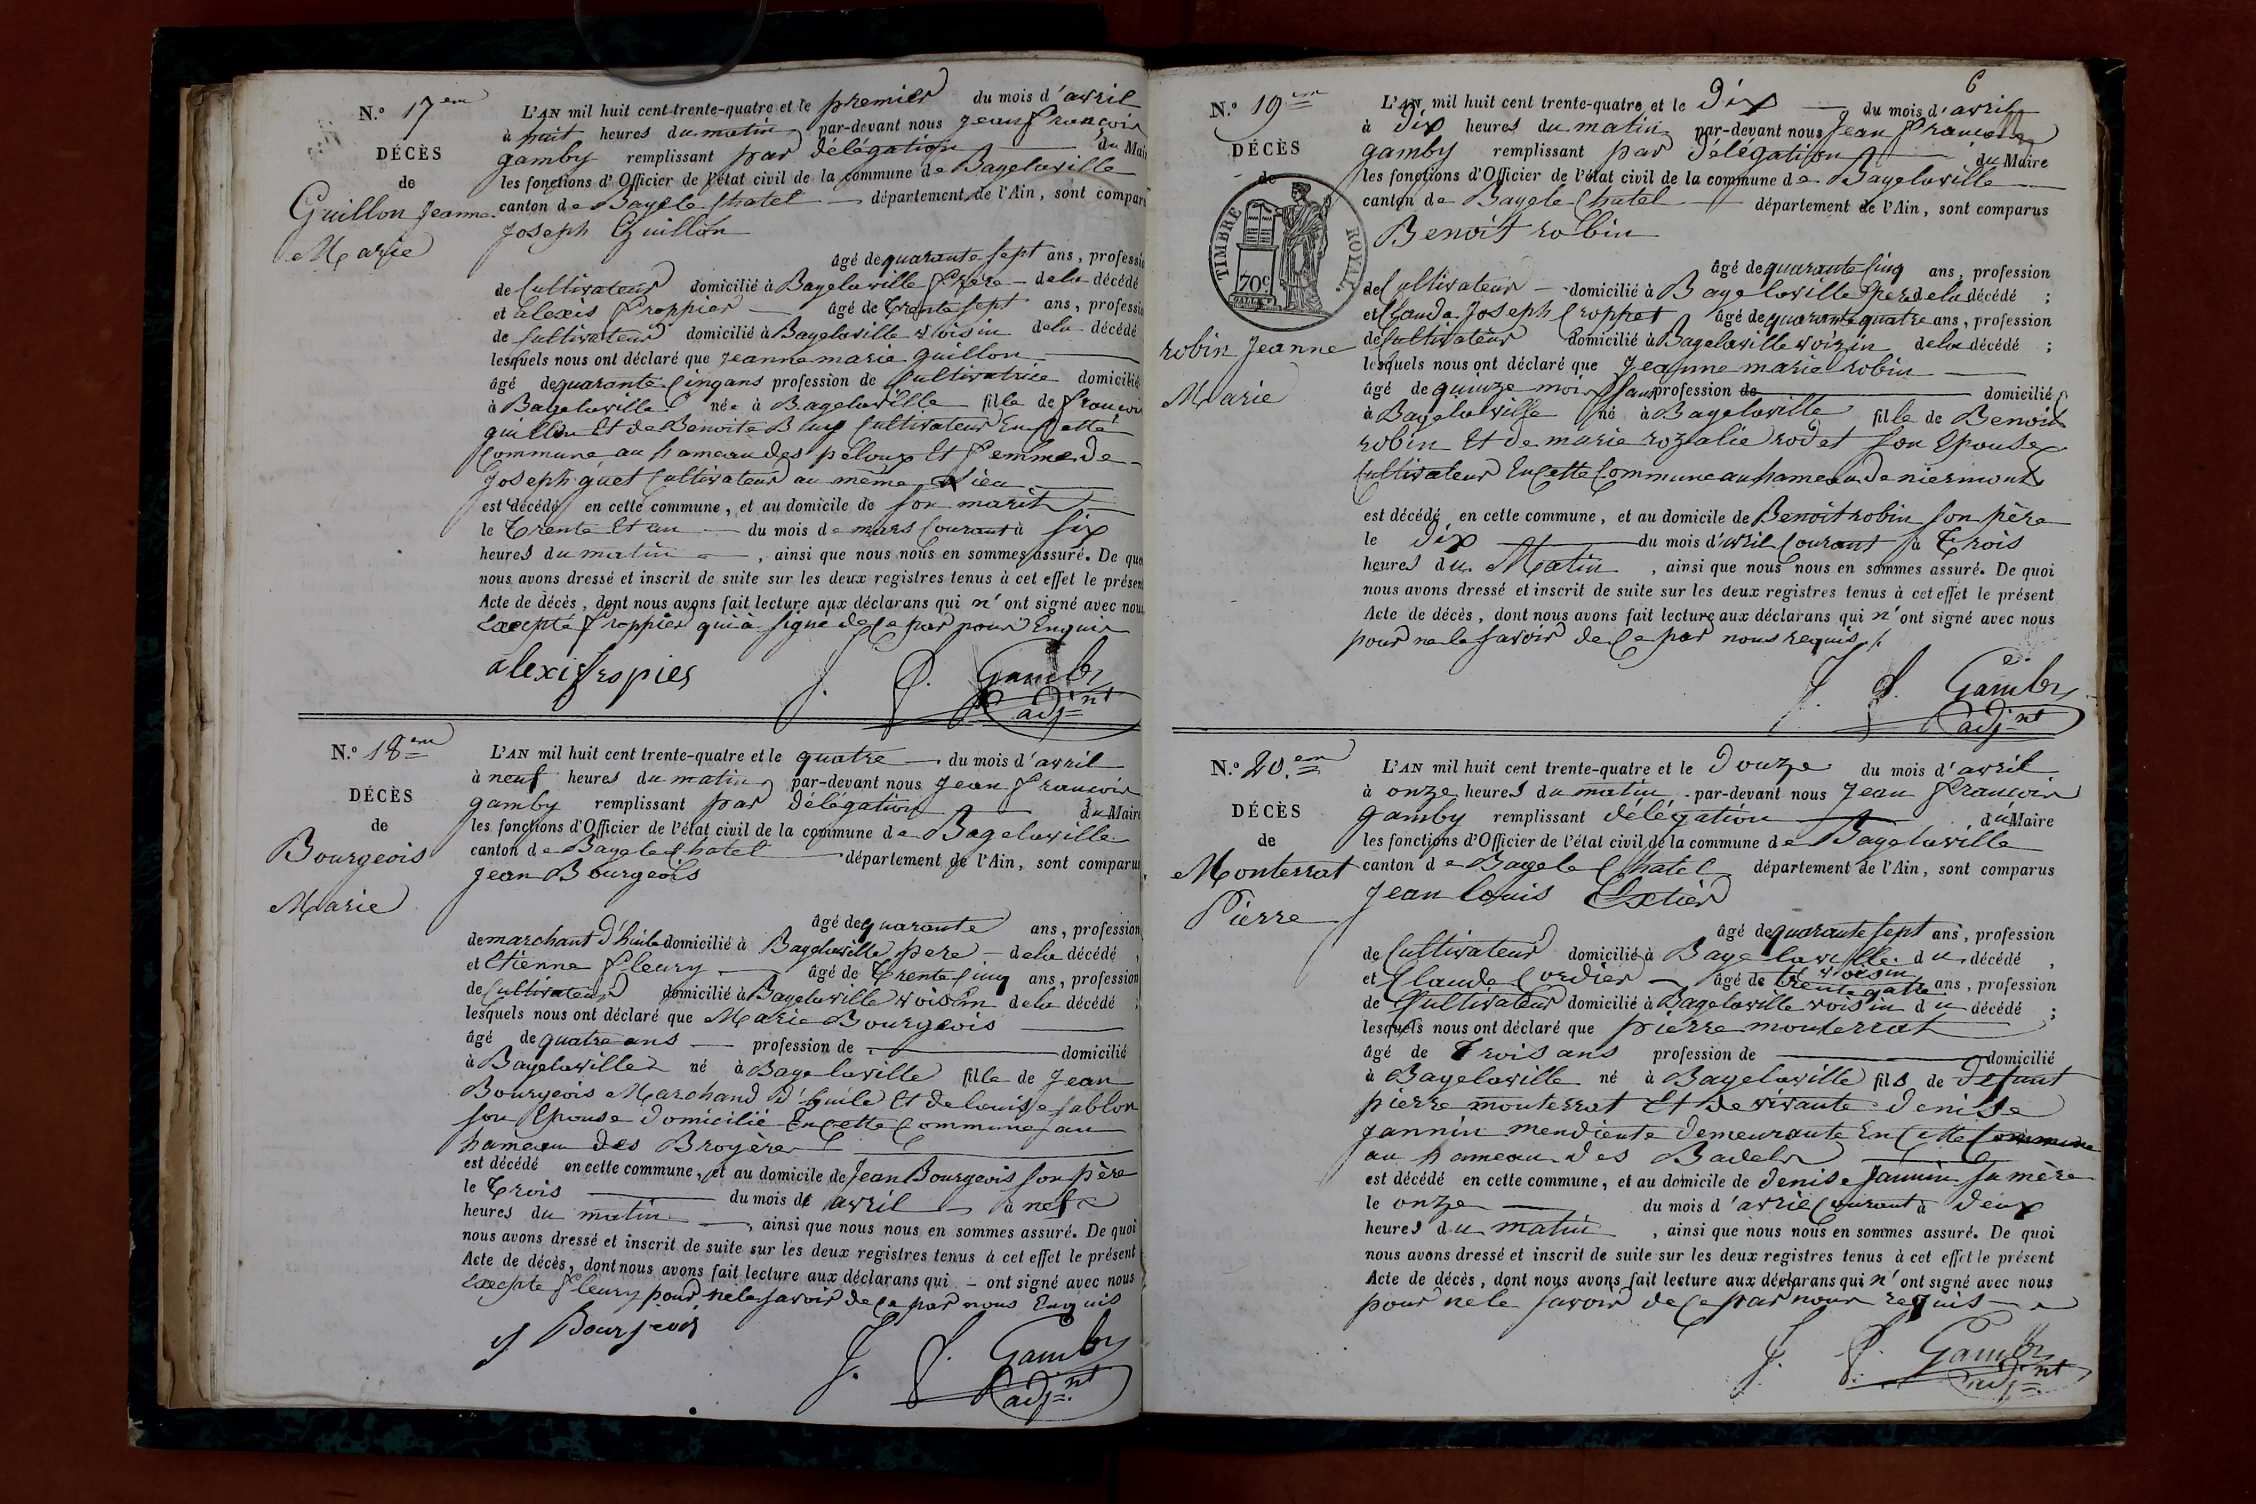 N.° 17em
DÉCÈS
de
Guillon Jeanne
Marie
L'AN mil huit cent trente-quatre et le premier du mois d'avril
à huit heures du matin par-devant nous Jean François
gamby remplissant par délégation du Mair
les fonctions d'Officier de l'état civil de la commune de Bagelaville
canton de Bagele Chatel département de l'Ain, sont compar
Joseph Guillon
âgé de quarante sept ans, professi
de Cultivateur domicilié à Bagelaville frère de la décédé
et alexis froppier âgé de trente sept ans, professi
de Cultivateur domicilié à Bagelaville voisin de la décédé
lesquels nous ont déclaré que Jeanne marie guillon
âgé de quarante Cinq ans profession de Cultivatrice domicilié
à Bagelaville née à Bagelaville fille de françoi
guillon Et de Benoite Cultivateur En Cette
Commune au hameau des peloux Et femme de
Joseph guet Cultivateur au même lieu
est décédé en cette commune, et au domicile de son marit
le trente Et un du mois de mars Courant à six
heures du matin, ainsi que nous nous en sommes assuré. De quo
nous avons dressé et inscrit de suite sur les deux registres tenus à cet effet le présen
Acte de décès, dont nous avons fait lecture aux déclarans qui n'ont signé avec nou
Excepté froppier qui a signé de Ce par nous Enquis
alexis fropier J. F. Gamby
adj.nt
N.° 18em
DÉCÈS
de
Bourgeois
Marie
L'AN mil huit cent trente-quatre et le quatre du mois d'avril
à neuf heures du matin par-devant nous Jean François
gamby remplissant par délégation du Maire
les fonctions d'Officier de l'état civil de la commune de Bagelaville
canton de Bagele Chatel département de l'Ain, sont comparus
Jean Bourgeois
âgé de quarante ans, profession
de marchant d'huile domicilié à Bagelaville pere de la décédé
et Etienne fleury âgé de trente Cinq ans, profession
de Cultivateur domicilié à Bagelaville voisin de la décédé ;
lesquels nous ont déclaré que Marie Bourgeois
âgé de quatre ans profession de domicilié
à Bagelaville né à Bagelaville fille de Jean
Bourgeois Marchand d'huile Et de louise sablon
son Epouse domicilié En Cette Commune au
hameau des Broyères
est décédé en cette commune, et au domicile de Jean Bourgeois son père
le trois du mois de avril à nef
heures du matin, ainsi que nous nous en sommes assuré. De quoi
nous avons dressé et inscrit de suite sur les deux registres tenus à cet effet le présent
Acte de décès, dont nous avons fait lecture aux déclarans qui ont signé avec nous
Excepte fleury pour ne le savoir de Ce par nous Enquis
J Bourjeois J. F. Gamby
adj.nt
6
N.° 19em
DÉCÈS
de
TIMBRE ROYAL
70c
robin Jeanne
Marie
L'AN mil huit cent trente-quatre et le Dix du mois d'avril
à Dix heures du matin par-devant nous Jean François
gamby remplissant par délégation du Maire
les fonctions d'Officier de l'état civil de la commune de Bagelaville
canton de Bagele Chatel département de l'Ain, sont comparus
Benoit robin
âgé de quarante Cinq ans, profession
de Cultivateur domicilié à Bagelaville pere de la décédé ;
et Claude Joseph Croppet âgé de quarante quatre ans, profession
de Cultivateur domicilié à Bagelaville voizin de la décédé ;
lesquels nous ont déclaré que Jeanne marie robin
âgé de quinze mois sans profession de domicilié
à Bagelaville né à Bagelaville fille de Benoit
robin Et de marie rozalie rodet son Epouse
Cultivateur En Cette Commune au hameau de niermont
est décédé en cette commune, et au domicile de Benoit robin son père
le dix du mois d'avril Courant à trois
heures du Matin, ainsi que nous nous en sommes assuré. De quoi
nous avons dressé et inscrit de suite sur les deux registres tenus à cet effet le présent
Acte de décès, dont nous avons fait lecture aux déclarans qui n'ont signé avec nous
pour ne le savoir de Ce par nous requis
J. F. Gamby
adj.nt
N.° 20.em
DÉCÈS
de
Monterrat
Pierre
L'AN mil huit cent trente-quatre et le Douze du mois d'avril
à onze heures du matin par-devant nous Jean François
gamby remplissant délégation du Maire
les fonctions d'Officier de l'état civil de la commune de Bagelaville
canton de Bagele Chatel département de l'Ain, sont comparus
Jean louis
âgé de quarante sept ans, profession
de Cultivateur domicilié à Bagelaville du décédé
voisin
et Claude Cordier âgé de trente gatre ans, profession
de Cultivateur domicilié à Bagelaville voisin du décédé ;
lesquels nous ont déclaré que pierre monterrat
âgé de trois ans profession de domicilié
à Bagelaville né à Bagelaville fils de defunt
pierre monterrat Et de vivante denise
Jannin mendiente demeurante En Cette Commune
au hameau des Badels
est décédé en cette commune, et au domicile de denise Jannin sa mère
le onze du mois d'avril Courant à deux
heures du matin, ainsi que nous nous en sommes assuré. De quoi
nous avons dressé et inscrit de suite sur les deux registres tenus à cet effet le présent
Acte de décès, dont nous avons fait lecture aux déclarans qui n'ont signé avec nous
pour ne le savoir de Ce par nous requis
J. F. Gamby
adj.nt